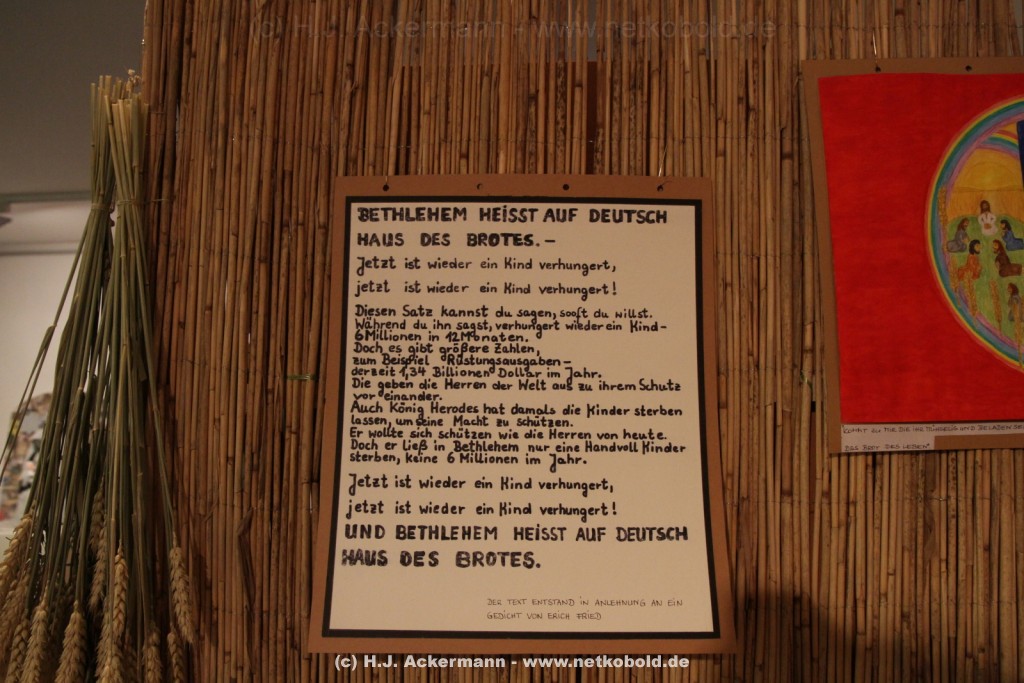 (c) H.J. Ackermann - www.netkobold.de
BETHLEHEM HEISST AUF DEUTSCH
HAUS DES BROTES.-
Jetzt ist wieder ein Kind verhungert,
jetzt ist wieder ein Kind verhungert!
Diesen Satz kannst du sagen, sooft du willst.
Während du ihn sagst, verhungert wieder ein Kind-
6 Millionen in 12 Monaten.
Doch es gibt größere Zahlen,
zum Beispiel Rüstungsausgaben-
derzeit 1,34 Billionen Dollar im Jahr.
Die geben die Herren der Welt aus zu ihrem Schutz
vor einander.
Auch König Herodes hat damals die Kinder sterben
lassen, um seine Macht zu schützen.
Er wollte sich schützen wie die Herren von heute.
Doch er ließ in Bethlehem nur eine Handvoll Kinder
sterben, keine 6 Millionen im Jahr.
Jetzt ist wieder ein Kind verhungert,
jetzt ist wieder ein Kind verhungert!
UND BETHLEHEM HEISST AUF DEUTSCH
HAUS DES BROTES.
DER TEXT ENTSTAND IN ANLEHNUNG AN EIN
GEDICHT VON ERICH FRIED
KOMMT ZU MIR DIE IHR MÜHSELIG UND BELADEN
DAS BROT DES LEBENS"
(c) H.J. Ackermann - www.netkobold.de